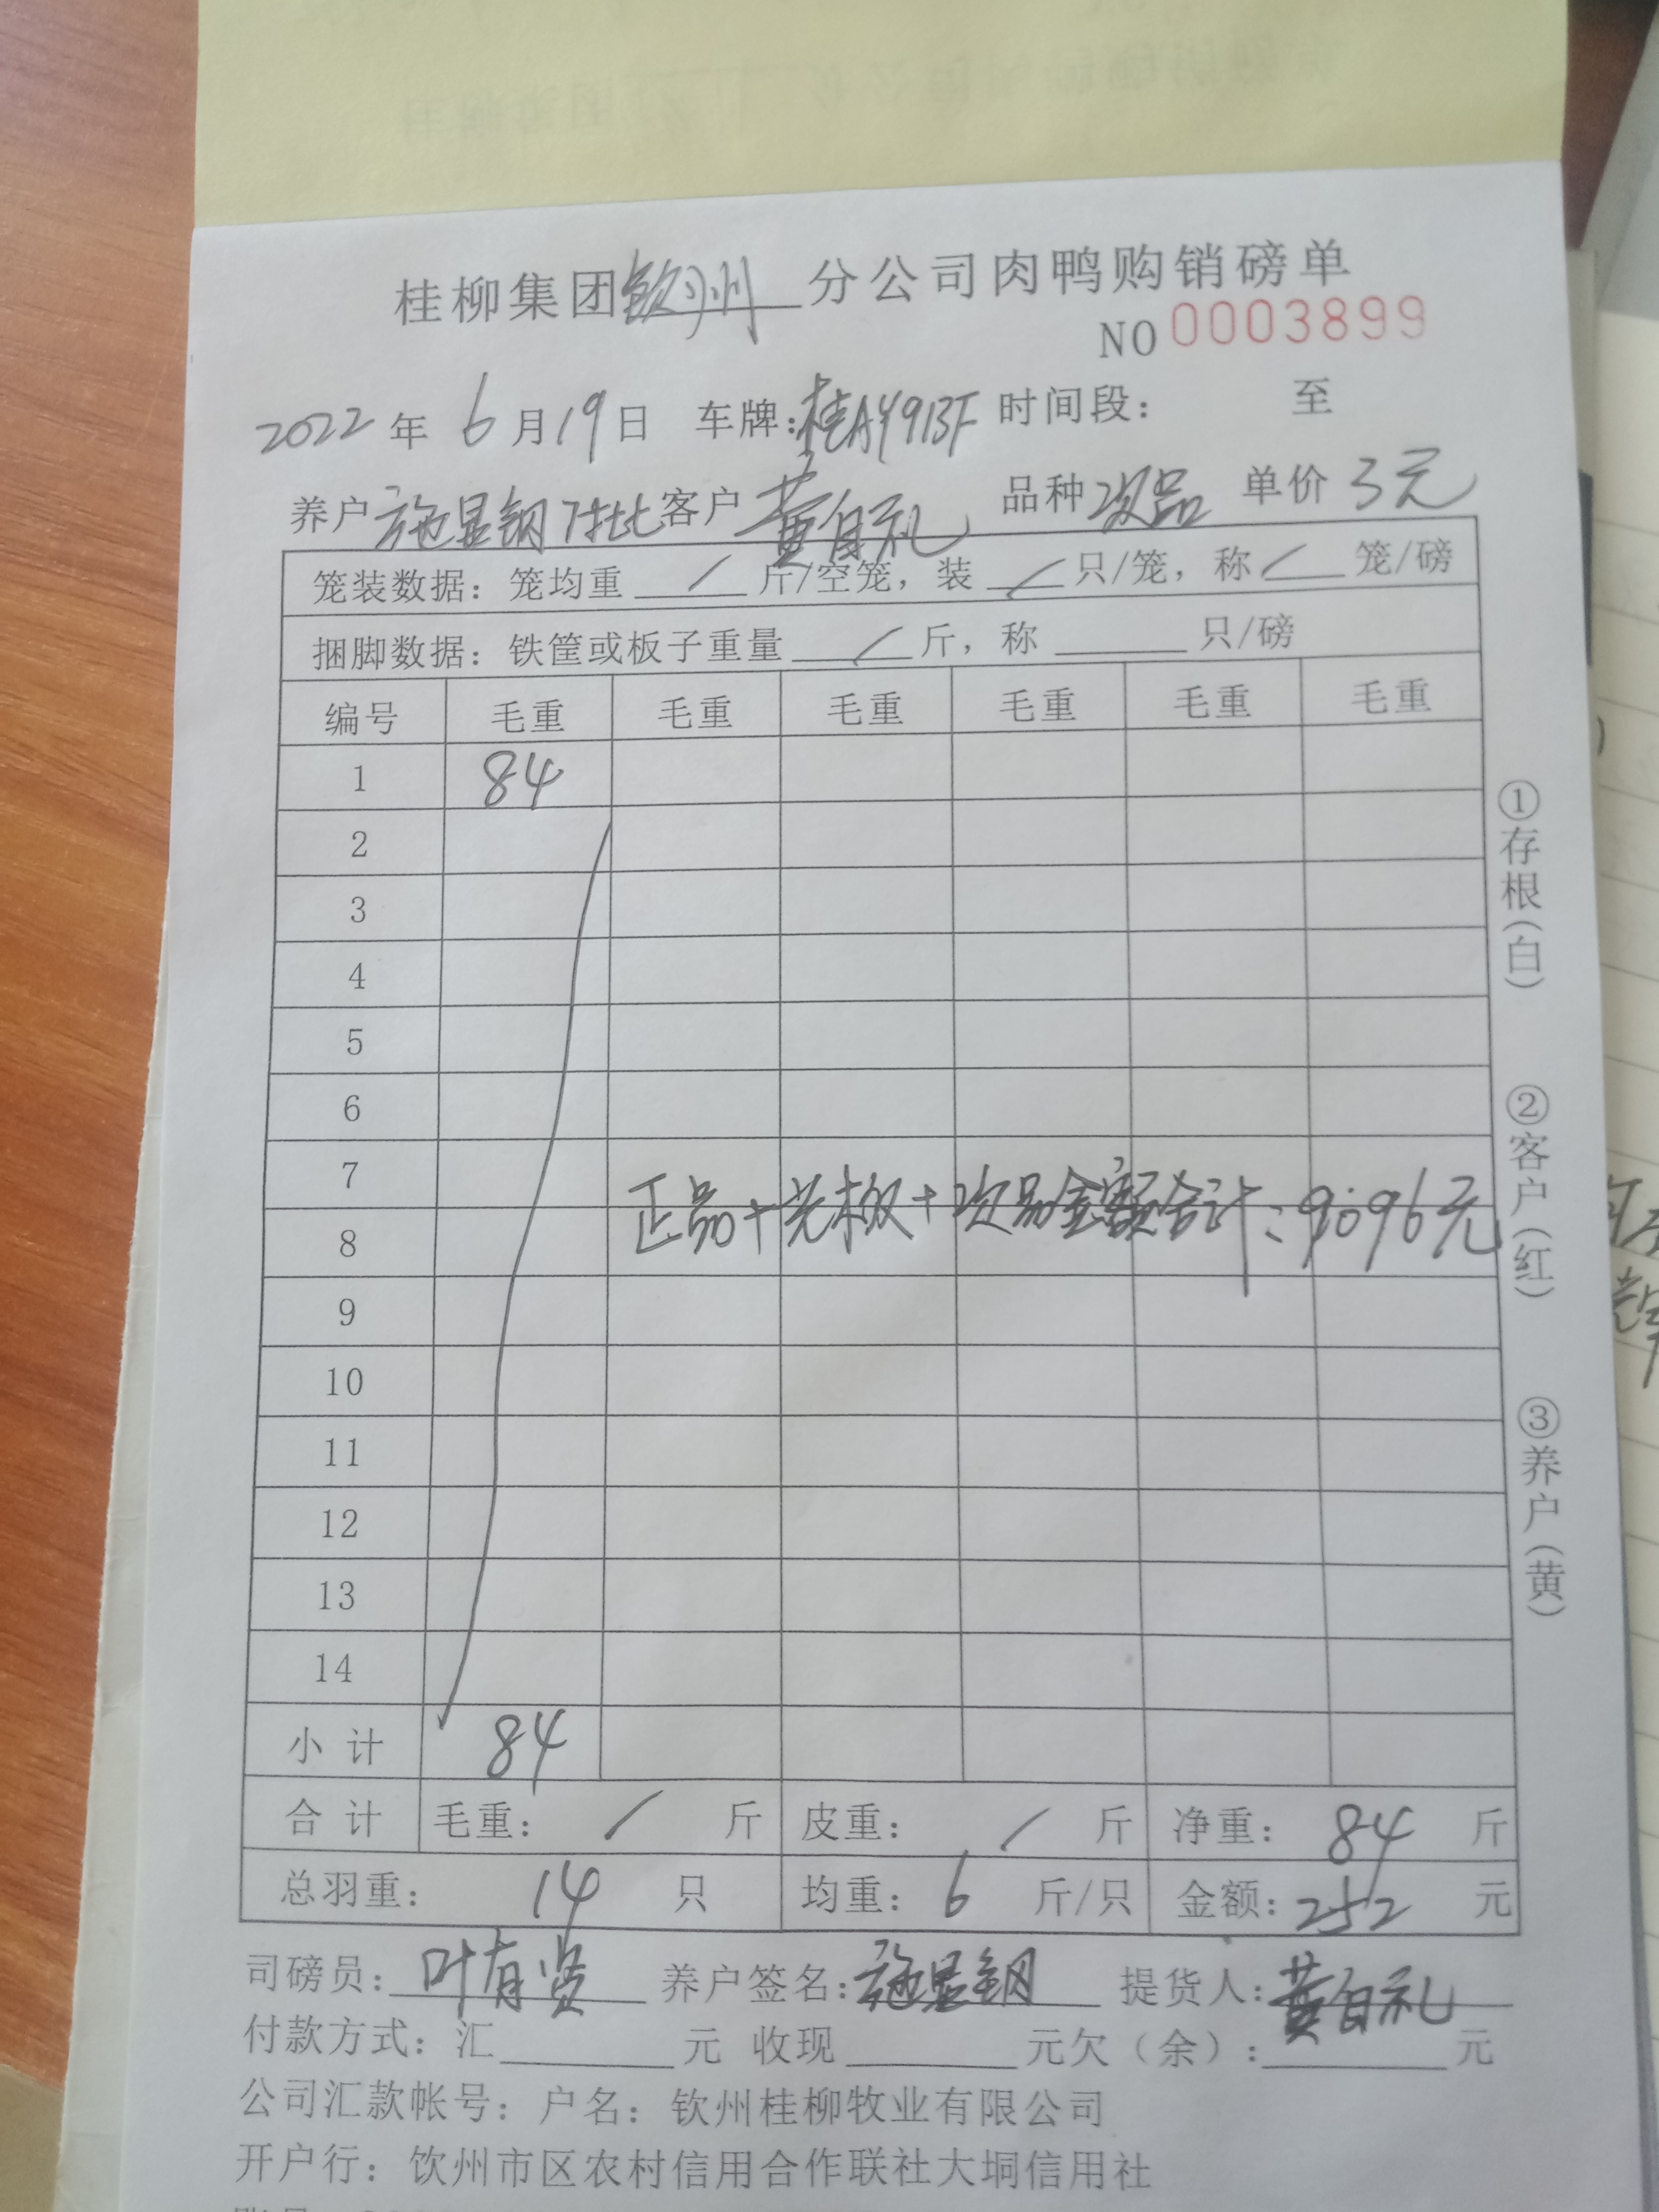 桂柳集团钦州分公司肉鸭购销磅单
NO 0003899
2022年6月19日 车牌:桂AY913F 时间段: 至
养户 施显钢7批 客户 黄自礼 品种 次品 单价 3元
笼装数据: 笼均重 / 斤/空笼, 装 / 只/笼, 称 / 笼/磅
捆脚数据: 铁筐或板子重量 / 斤, 称 只/磅
编号 毛重 毛重 毛重 毛重 毛重 毛重
1 84
2
3
4
5
6
7
正品+光板+次品金额合计:9096元
8
9
10
11
12
13
14
小计 84
合计 毛重: / 斤 皮重: / 斤 净重: 84 斤
总羽重: 14 只 均重: 6 斤/只 金额: 252 元
司磅员: 叶有贤 养户签名: 施显钢 提货人: 黄自礼
付款方式: 汇 元 收现 元欠(余): 元
公司汇款帐号: 户名: 钦州桂柳牧业有限公司
开户行: 钦州市区农村信用合作联社大垌信用社
①存根(白)
②客户(红)
③养户(黄)